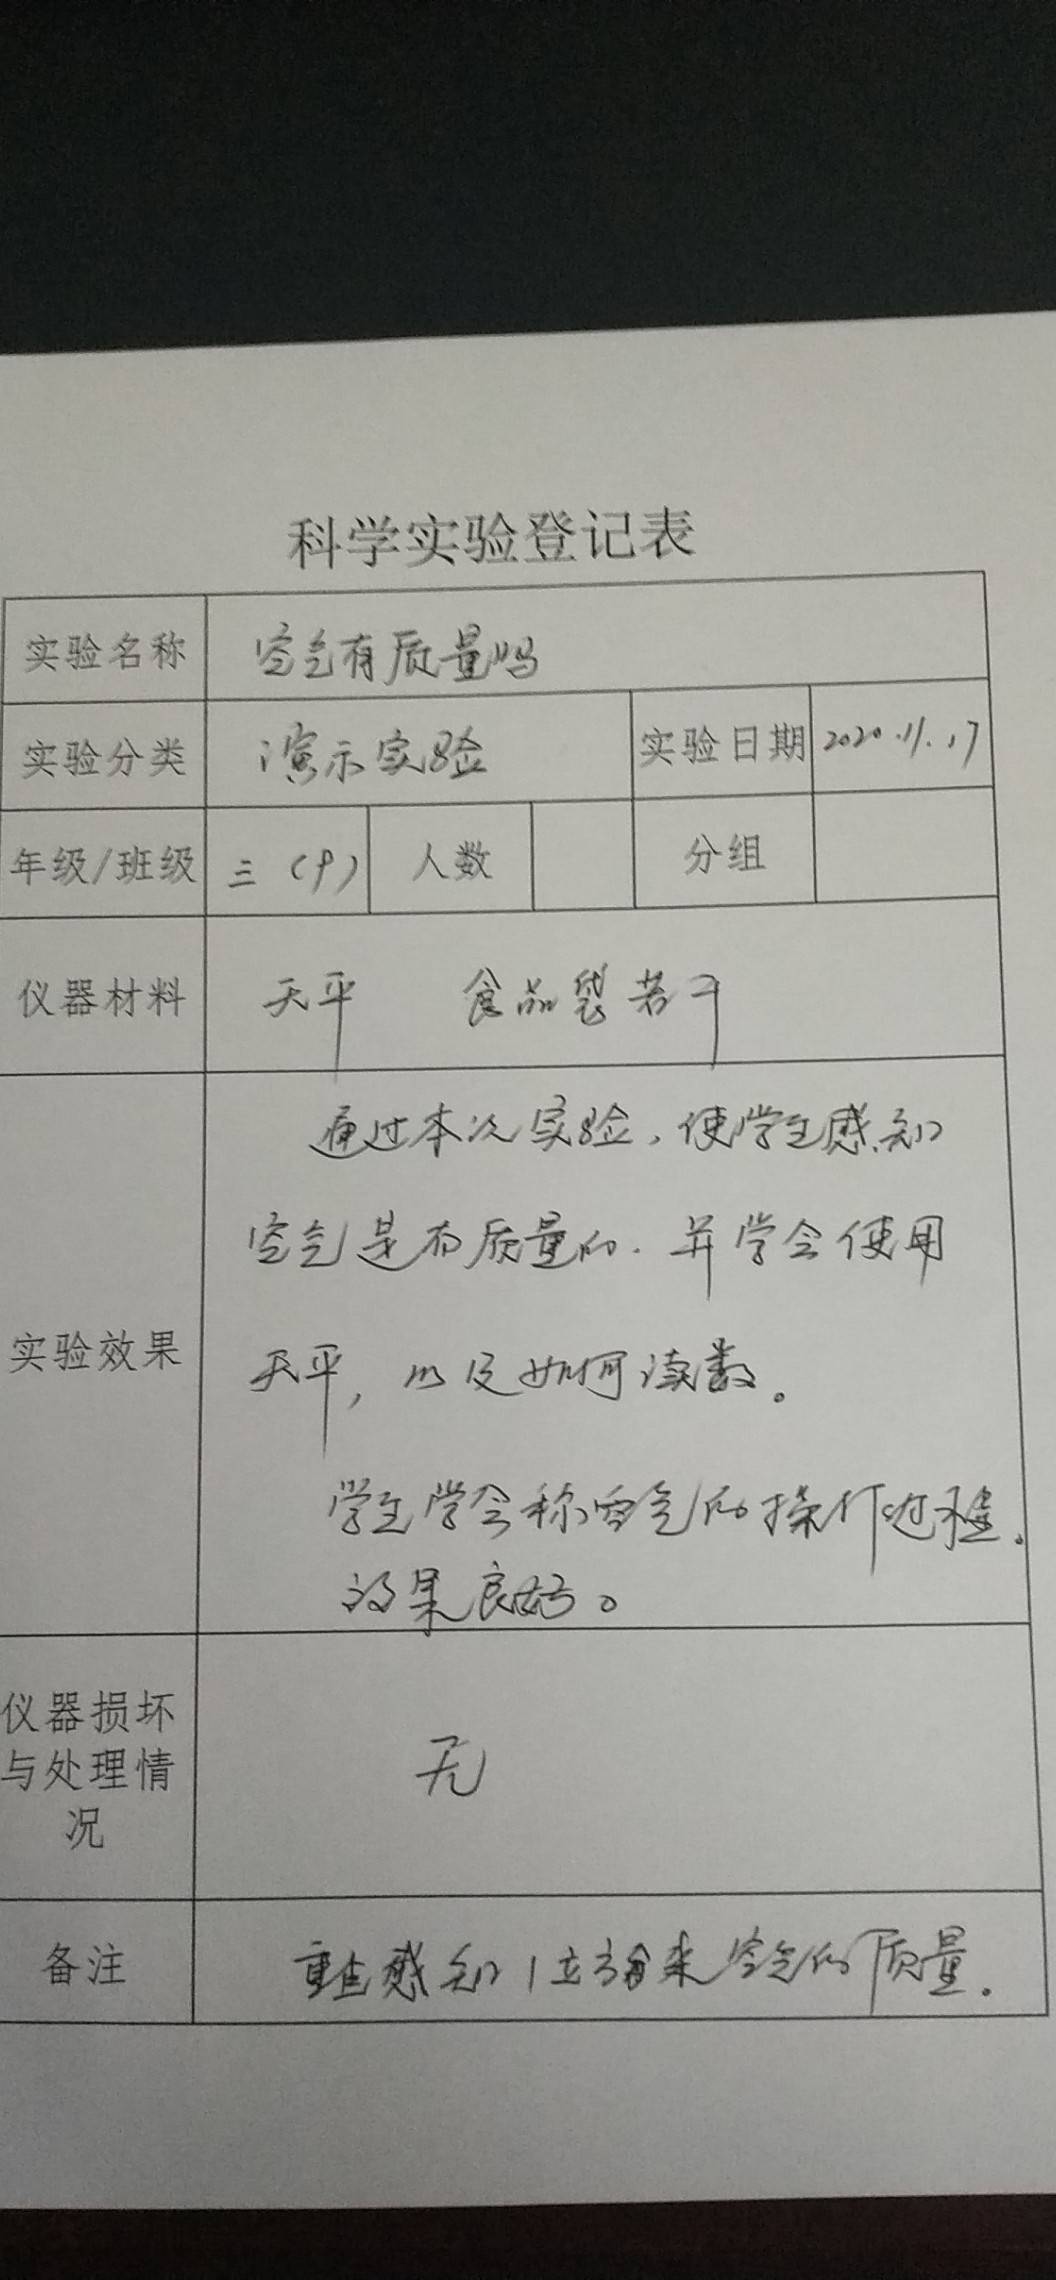 科学实验登记表
实验名称 空气有质量吗
实验分类 演示实验 实验日期 2020.11.17
年级/班级 三 人数 分组
仪器材料 天平 食品袋若干
通过本次实验,使学生感知
空气是有质量的.并学会使用
实验效果 天平,以及如何读数。
学生学会称空气的操作过程。
效果良好。
仪器损坏
与处理情 无
况
备注 感知1立方米空气的质量.